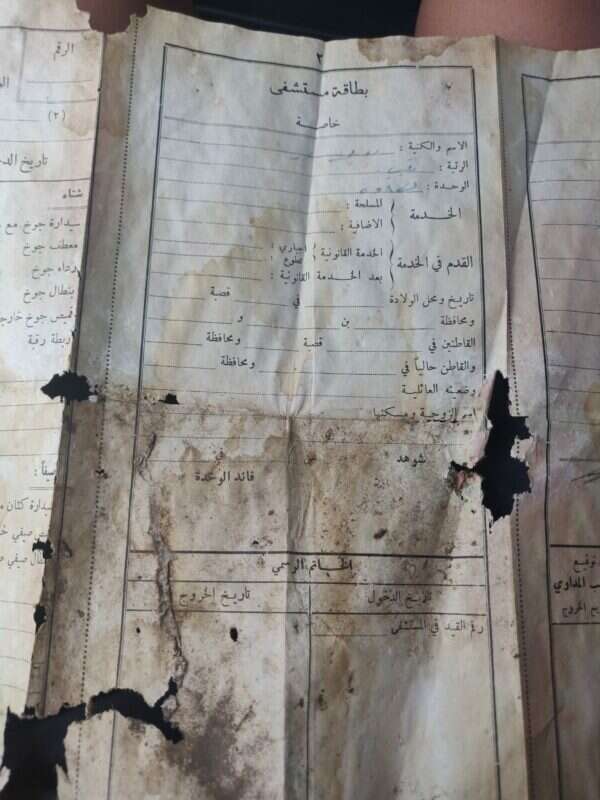 ٣
بطاقة مستشفى
خاصة
الاسم والكنية :
الرتبة :
الوحدة :
الخدمة { المسلحة :
الاضافية :
القدم في الخدمة { الخدمة القانونية { اجباري :
تطوع :
بعد الخدمة القانونية :
تاريخ ومحل الولادة في قصبة
ومحافظة بن و
القاطنين في قصبة ومحافظة
والقاطن حالياً في ومحافظة
وضعيته العائلية
اسم الزوجية ومسكنها
شوهد في
قائد الوحدة
الخاتم الرسمي
تاريخ الدخول تاريخ الخروج
رقم القيد في المستشفى
الرقم
(٢)
شتاء
سيدارة جوخ مع
معطف جوخ
رداء جوخ
بنطال جوخ
قميص جوخ
ربطة رقبة
صيفاً :
سيدارة كتان
توقيع
الخروج